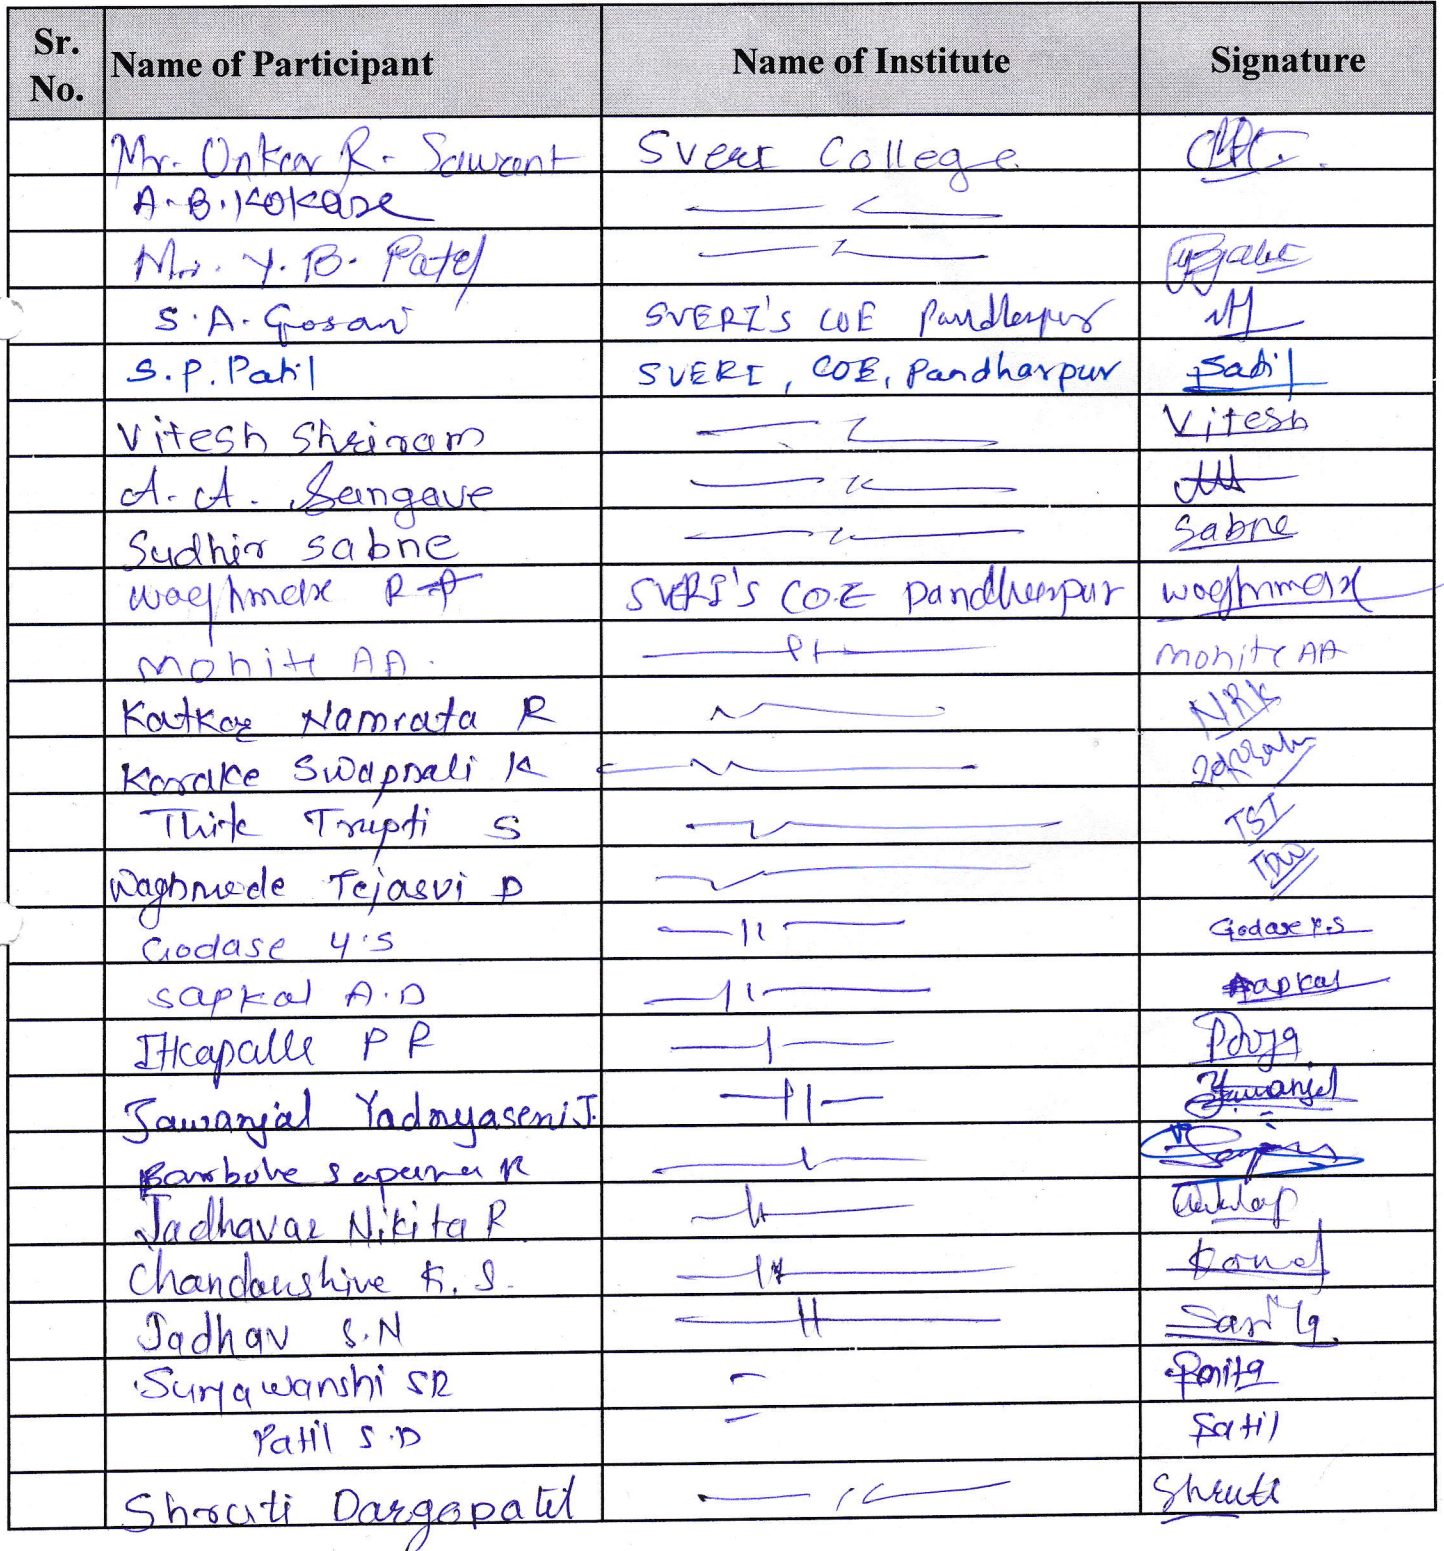 Sr. No. Name of Participant Name of Institute Signature
Mr. Onkar R. Sawant SVERI College
A. B. Kokare
Mr. Y. B. Patel
S. A. Gosavi SVERI's COE Pandharpur
S. P. Patil SVERI, COE, Pandharpur Satil
Vitesh Shriram Vitesh
A. A. Sangave
Sudhir Sabne Sabne
Waghmare R A SVERI's COE Pandharpur Waghmare
Mohite AA. Mohite AA
Katkar Namrata R NRK
Korake Swapnali K
Thite Trupti S TST
Waghmode Tejasvi D TDW
Godase Y.S Godase Y.S
Sapkal A.D Sapkal
Itkapalle P R Pooja
Jawanjal Yadnyaseni J. Jawanjal
Barbole Sapana R
Jadhavar Nikita R
Chandanshive K. S. Komal
Jadhav S.N
Suryawanshi SR
Patil S.D Patil
Shruti Dargopatil Shruti